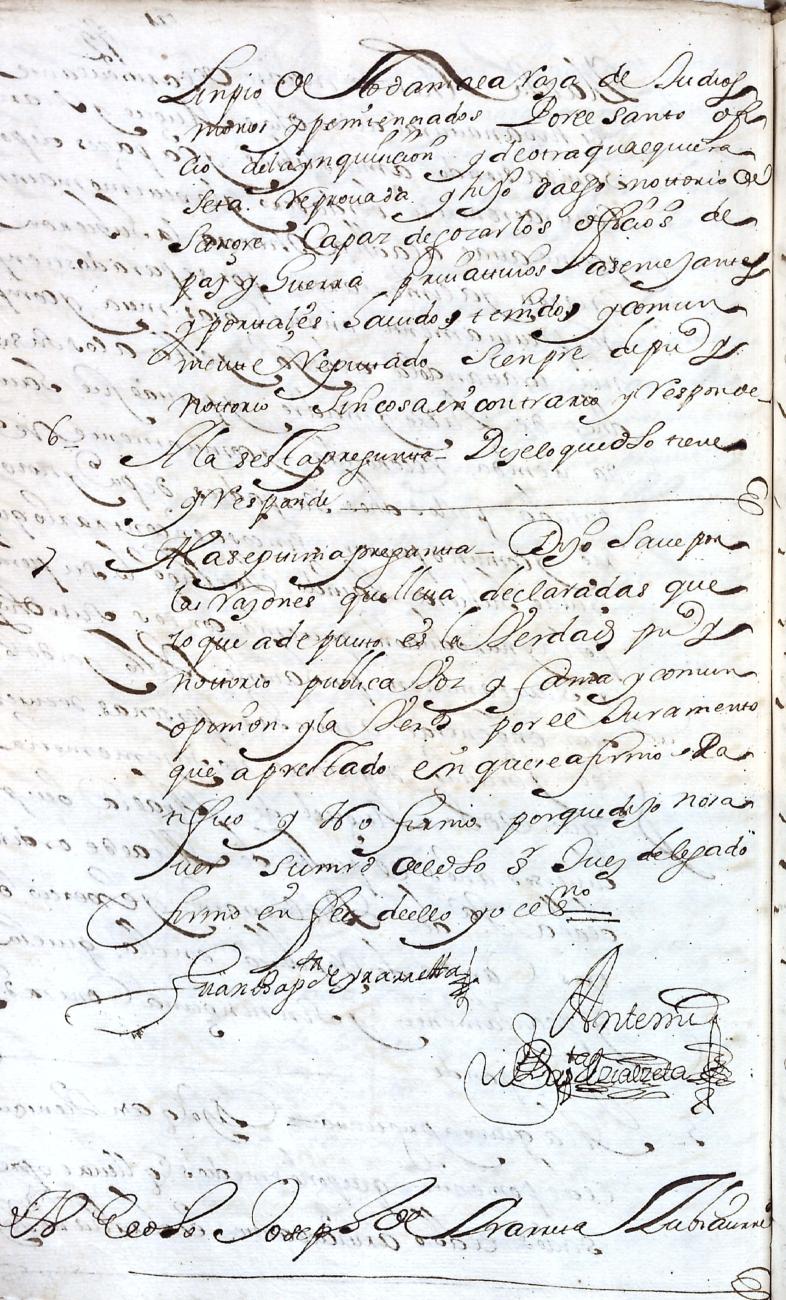 Linpio de toda mala raza de Judios
moros y penitenziados Por el santo ofi
cio de la ynquisicion y de otra qualequiera
seta Reprouada y hijo dalgo nottorio de
sangre Capaz de gozar los oficios de
paz y Guerra priuatiuos asemejantes
y por tales hauidos tenidos y comun
mente Reputado sienpre de puco y
nottorio sin cosa en contrario y responde
6 A la sesta pregunta Dijo lo que dho tiene
y Responde
7 A la septima pregunta Dijo saue por
las razones que lleua declaradas que
lo que a depuesto es la Verdad puco y
nottorio publica Voz y fama y comun
opinion y la Verd por el Juramento
que a prestado en que se afirmo Ra
tifico y No firmo porque dijo no sa
uer su mrd del dho sr Juez delegado
firmo en fee de ello yo el Esno
Juan Bapta de Yrarretta
Antemi
Bapta de Zialzeta
El dho Joseph de